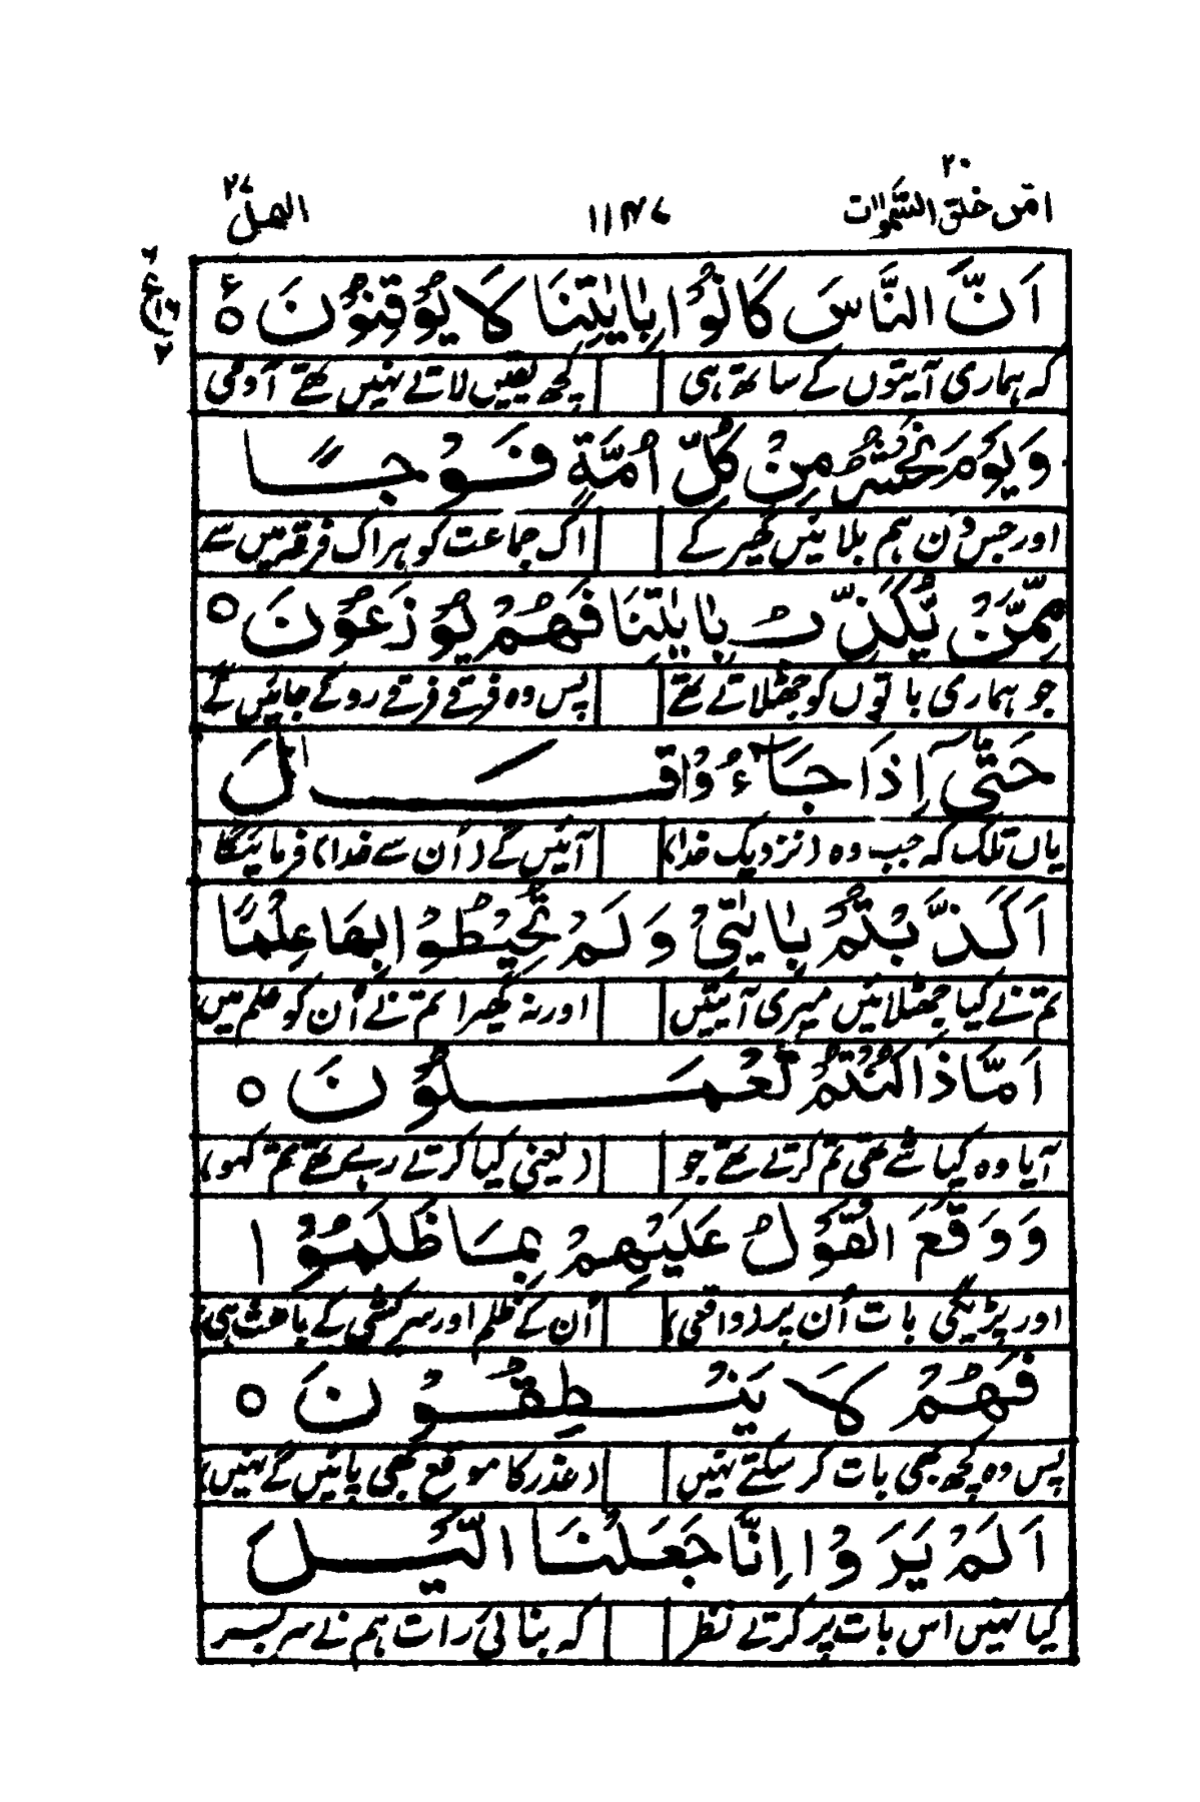 امن خلق السمٰوات ٢٠
١١٣٧
النمل ٢٧
اَنَّ النَّاسَ كَانُوْا بِاٰيٰتِنَا لَا يُوْقِنُوْنَ ۝ ع
کہ ہماری آیتوں کے ساتھ ہی کچھ یقیں لاتے نہیں تھے آدمی
وَيَوْمَ نَحْشُرُ مِنْ كُلِّ اُمَّةٍ فَوْجًا
اور جس دن ہم بلائیں گھیر کے اک جماعت کو ہر اک فرقہ میں سے
مِّمَّنْ يُّكَذِّبُ بِاٰيٰتِنَا فَهُمْ يُوْزَعُوْنَ ۝
جو ہماری باتوں کو جھٹلاتے تھے پس وہ فرقے فرقے روکے جائیں گے
حَتّٰىٓ اِذَا جَآءُوْا قَالَ
یاں تلک کہ جب وہ (نزدیک خدا) آئیں گے (اُن سے خدا) فرمائیگا
اَكَذَّبْتُمْ بِاٰيٰتِىْ وَلَمْ تُحِيْطُوْا بِهَا عِلْمًا
تم نے کیا جھٹلائیں میری آیتیں اور نہ گھیرا تم نے اُن کو علم میں
اَمَّاذَا كُنْتُمْ تَعْمَلُوْنَ ۝
آیا وہ کیا شے تھی تم کرتے تھے جو (یعنی کیا کرتے رہے تھے تم کہو)
وَوَقَعَ الْقَوْلُ عَلَيْهِمْ بِمَا ظَلَمُوْا
اور پڑیگی بات اُن پر (واقعی) اُن کے ظلم اور سرکشی کے باعث ہی
فَهُمْ لَا يَنْطِقُوْنَ ۝
پس وہ کچھ بھی بات کر سکتے نہیں (عذر کا موقع بھی پائیں گے نہیں)
اَلَمْ يَرَوْا اِنَّا جَعَلْنَا الَّيْلَ
کیا نہیں اس بات پر کرتے نظر کہ بنائی رات ہم نے سر بسر